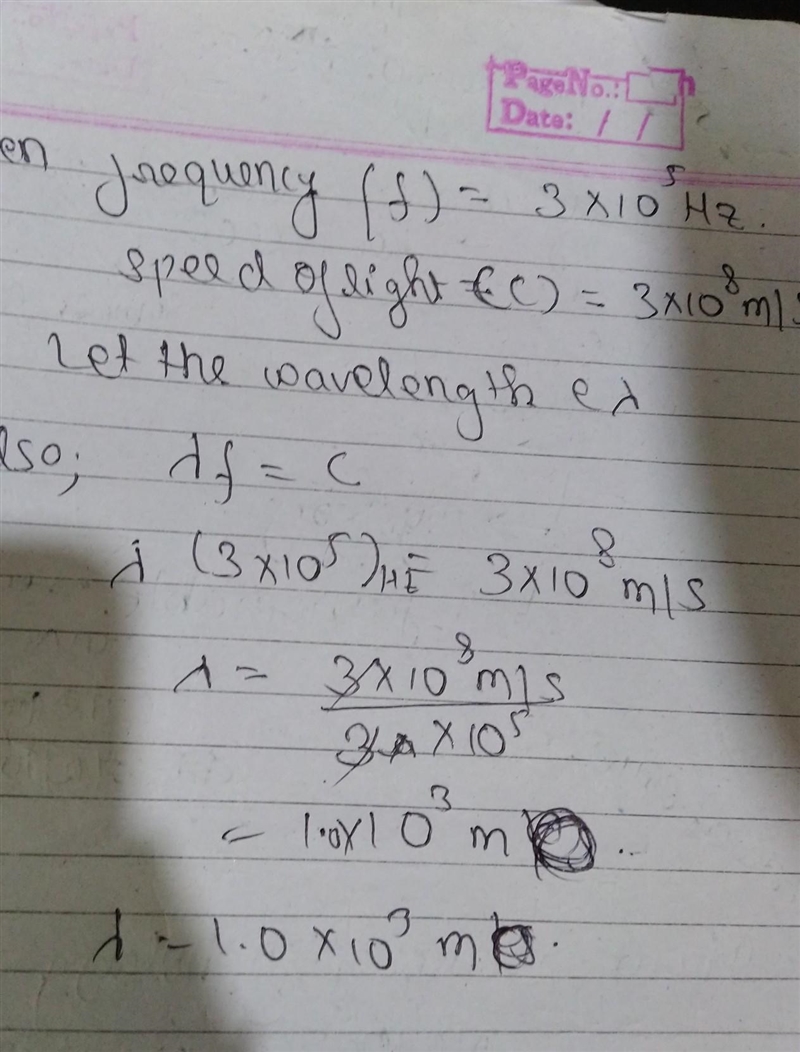 PageNo.:
Date: / /
en frequency (f) = 3×10⁵ Hz.
speed of light (C) = 3×10⁸ m/s
Let the wavelength e λ
lso; λf = C
λ (3×10⁵)Hz = 3×10⁸ m/s
λ = 3×10⁸ m/s
3 × 10⁵
= 1.0×10³ m .
λ = 1.0 × 10³ m .